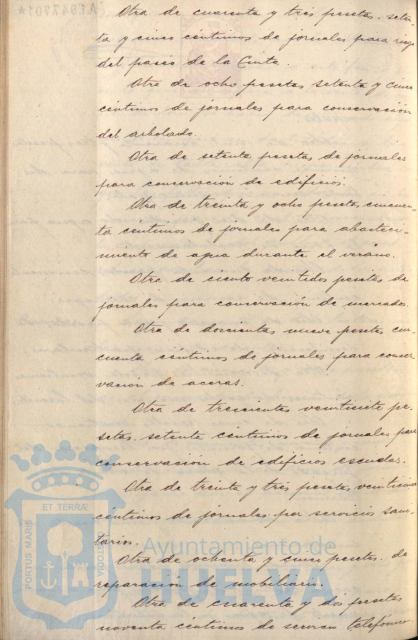 Otra de cuarenta y tres pesetas, seten
ta y cinco céntimos de jornales para riego
del paseo de la Cinta.
Otra de ocho pesetas setenta y cinco
céntimos de jornales para conservación
del arbolado.
Otra de setenta pesetas de jornales
para conservación de edificios.
Otra de treinta y ocho pesetas, cincuen-
ta céntimos de jornales para abasteci-
miento de agua durante el verano.
Otra de ciento veintidos pesetas de
jornales para conservación de mercados
Otra de doscientas nueve pesetas cin-
cuenta céntimos de jornales para conser
vación de aceras.
Otra de trescientas veintisiete pe-
setas, setenta céntimos de jornales para
conservación de edificios escuelas.
Otra de treinta y tres pesetas, veinticinco
céntimos de jornales por servicios sani-
tarios.
Otra de ochenta y cinco pesetas de
reparación de mobiliario.
Otra de cuarenta y dos pesetas
noventa céntimos de servicio telefónico
PORTUS MARIS
ET TERRÆ
CUSTODIA
Ayuntamiento de
HUELVA